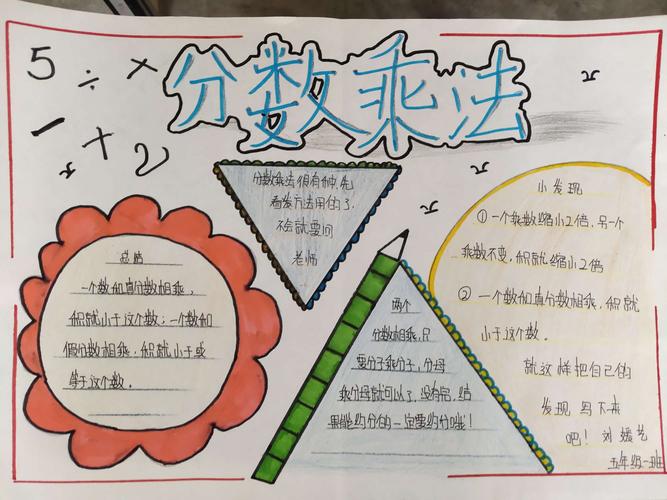 分数乘法
5 ÷ ×
- + 2
分数乘法很有神,先
看发方法用的了.
不会就要问
老师
总结
一个数和真分数相乘,
积就小于这个数;一个数和
假分数相乘,积就小于或
等于这个数.
两个
分数相乘,只
要分子乘分子,分母
乘分母就可以了,没有完,结
果能约分的一定要约分哦!
小发现
①一个乘数缩小2倍,另一个
乘数不变,积就缩小2倍
②一个数和真分数相乘,积就
小于这个数.
就这样把自己的
发现写下来
吧!刘媛艺
五年级一班